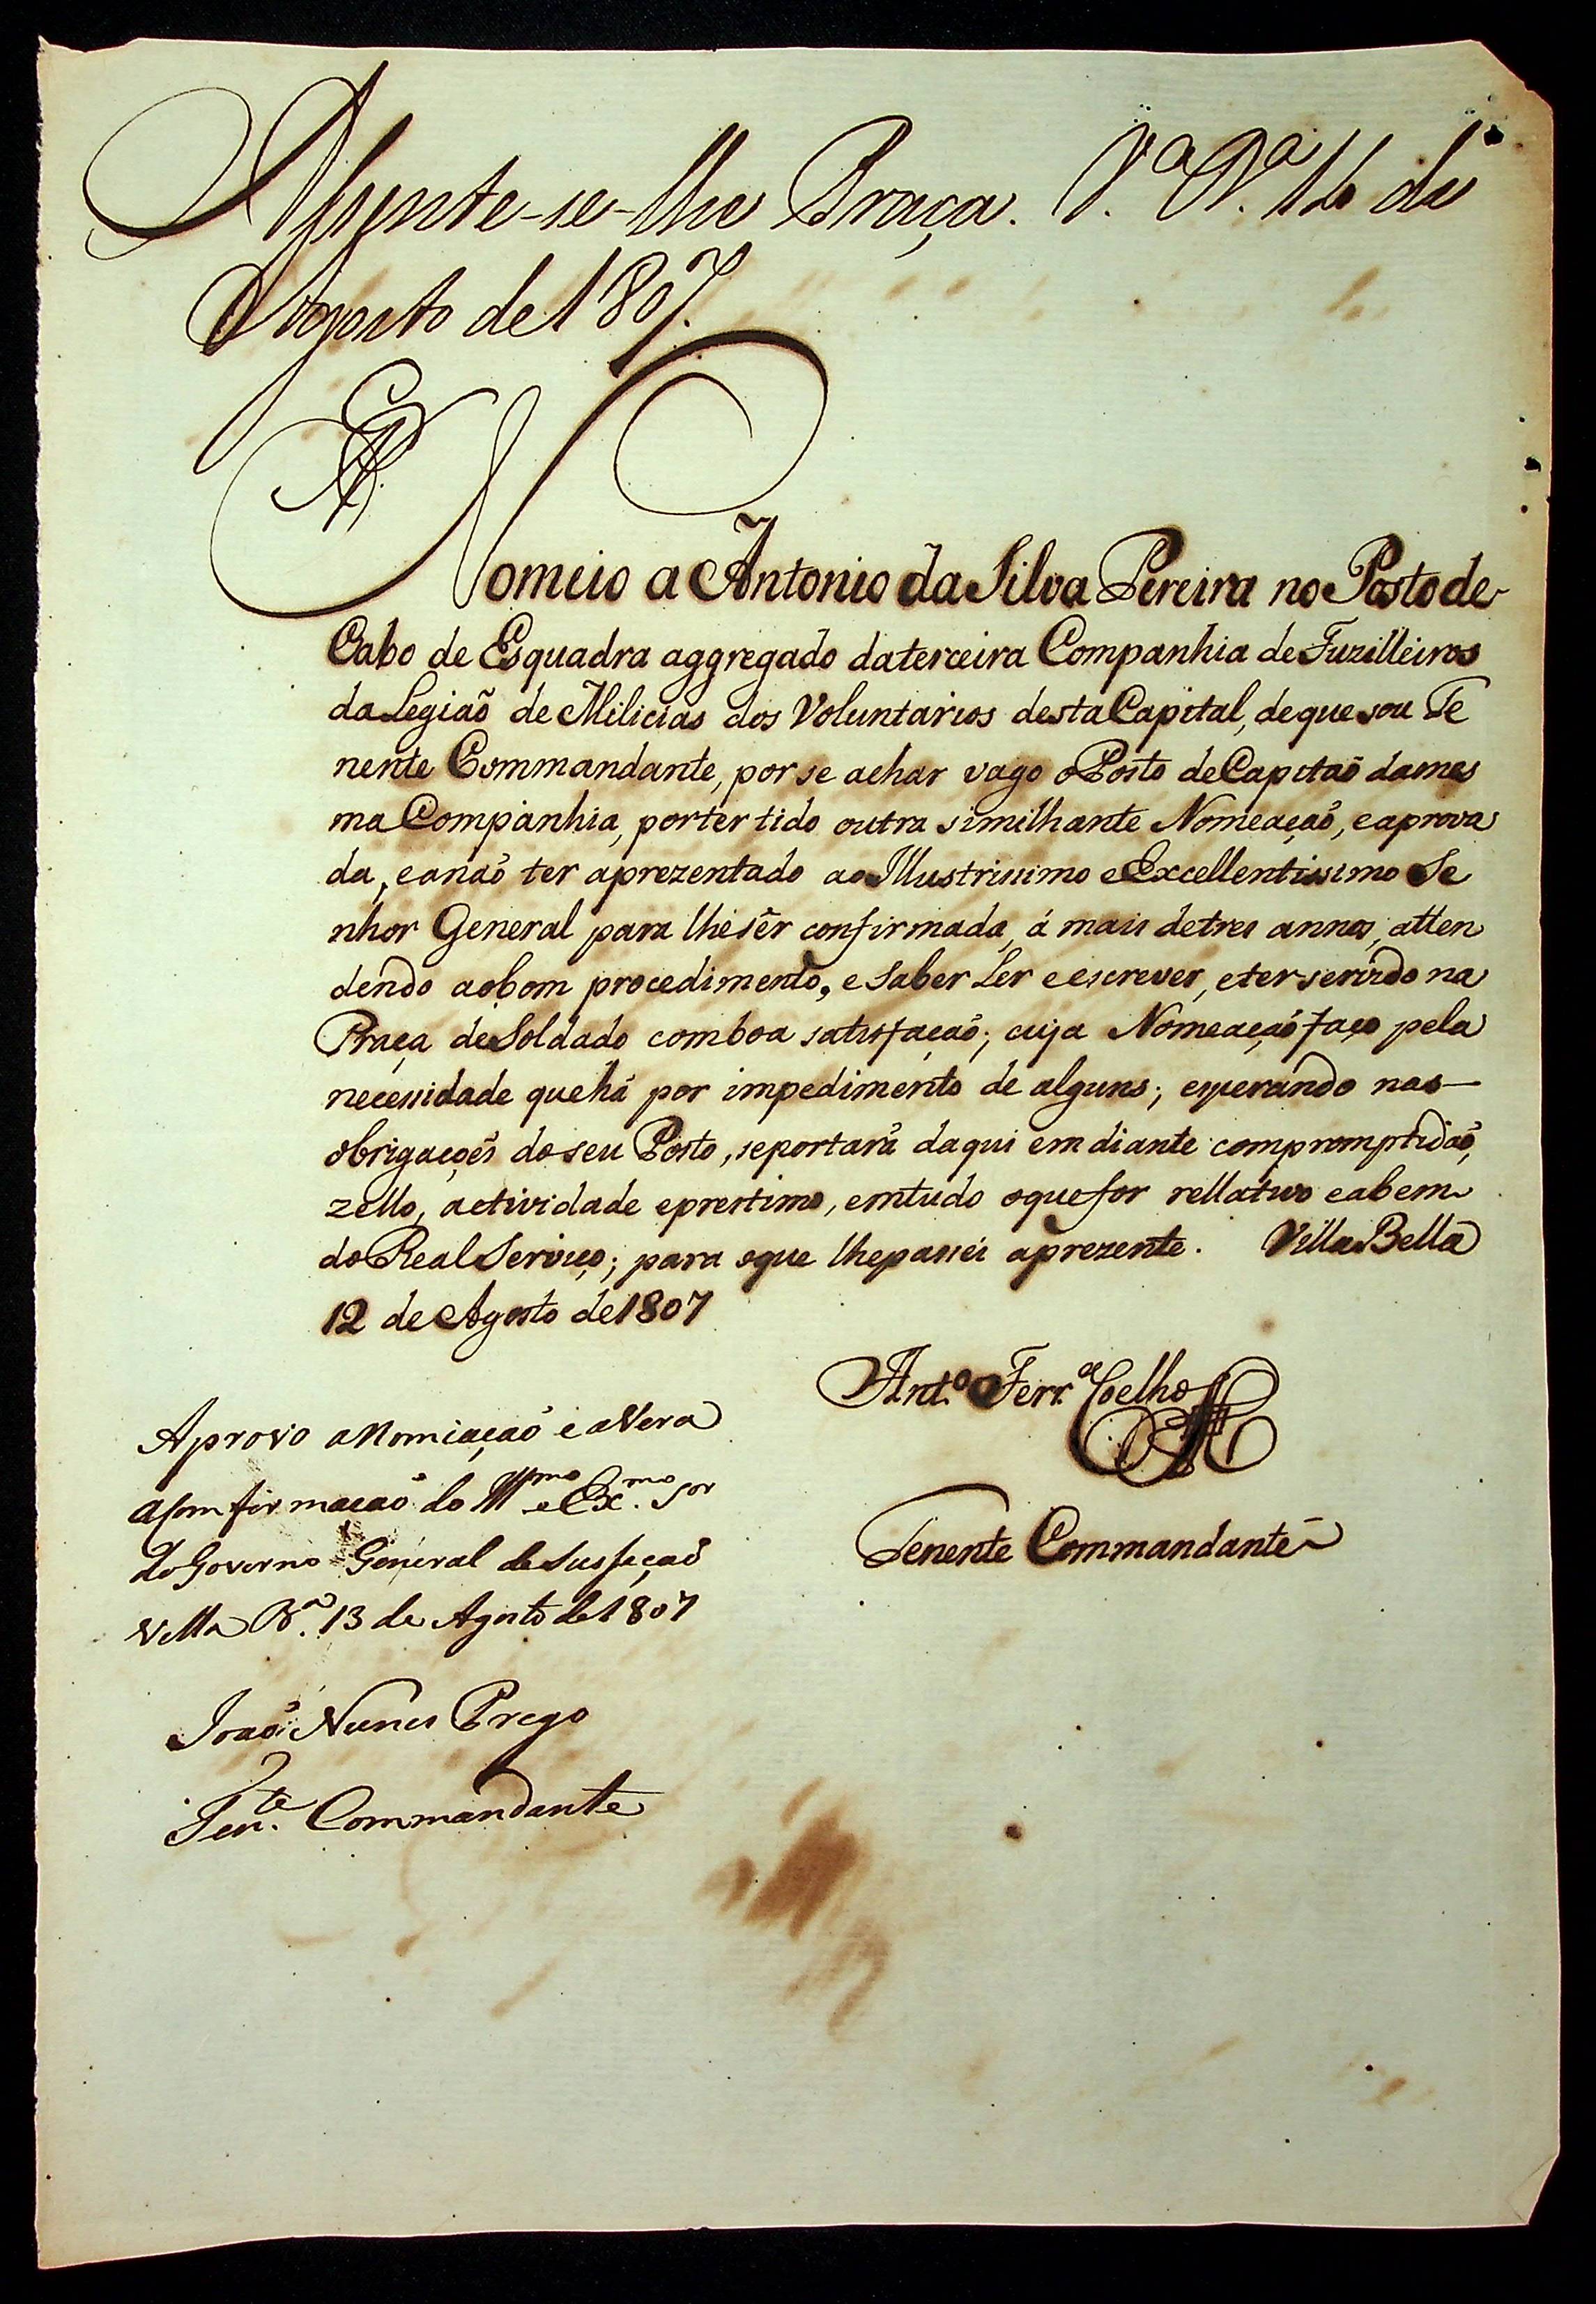 Assente-se-lhe Praça. V.ª B.ª 16 de
Agosto de 1807.
Nomeio a Antonio da Silva Pereira no Posto de
Cabo de Esquadra aggregado da terceira Companhia de Fuzilleiros
da Legiaõ de Milicias dos Voluntarios desta Capital, de que sou Te
nente Commandante, por se achar vago o Posto de Capitaõ da mes
ma Companhia, por ter tido outra similhante Nomeaçaõ, e aprova
da, e a naõ ter aprezentado ao Illustrissimo e Excellentissimo Se
nhor General para lhe sêr confirmada, á mais de tres annos, atten
dendo ao bom procedimento, e saber Ler e escrever, e ter servido na
Praça de Soldado com boa satisfaçaõ; cuja Nomeaçaõ faço pela
necessidade que há por impedimento de alguns; esperando nas
obrigaçoẽs do seu Posto, se portará daqui em diante com promptidaõ,
zello, actividade e prestimo, em tudo o que for rellativo e a bem
do Real Serviço; para o que lhe passei a prezente. Villa Bella
12 de Agosto de 1807
Ant.º Ferr.ª Coelho
Tenente Commandante
Aprovo a Nomiaçaõ e avera
a Comfirmacaõ do Ill.mo e Ex.mo S.or
do Governo General de Susseçaõ
Villa B.ª 13 de Agosto de 1807
Joaõ Nunes Prego
Ten.te Commandante